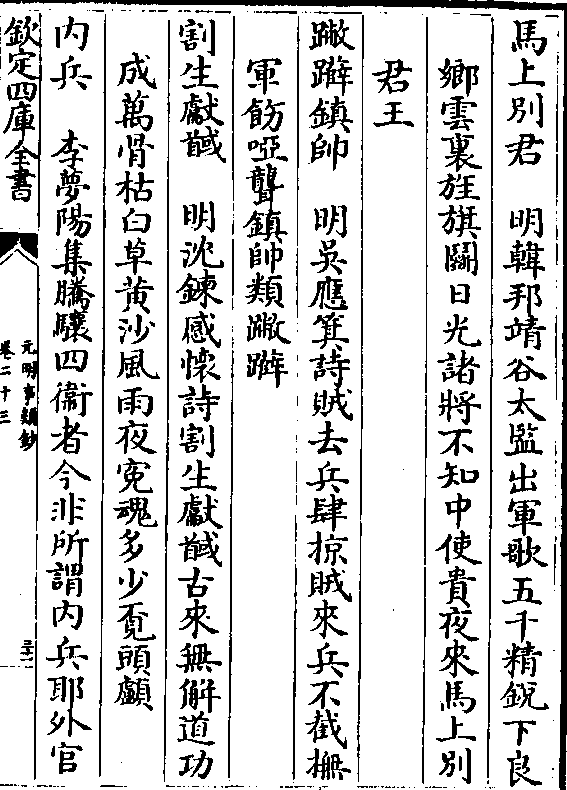 馬上別君　明韓邦靖谷太監出軍歌五千精鋭下良
鄉雲裏旌旗關日光諸將不知中使貴夜來馬上別
君王
蹶躃鎮帥　明吳應箕詩賊去兵肆掠賊來兵不截撫
軍飭啞聾鎮帥類蹶躃
割生獻馘　明沈鍊感懷詩割生獻馘古來無解道功
成萬骨枯白草黄沙風雨夜寃魂多少覔頭顱
内兵　李夢陽集騰驤四衛者今非所謂内兵耶外官
欽定四庫全書
元明事類鈔
卷二十三